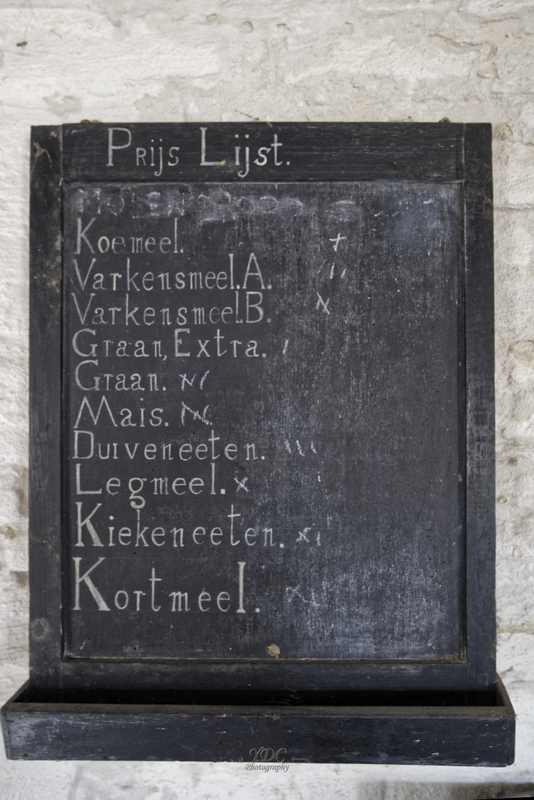 Prijs Lijst.
Koemeel.
Varkensmeel.A.
Varkensmeel.B.
Graan, Extra.
Graan.
Mais.
Duiveneeten.
Legmeel. x
Kiekeneeten.
Kortmeel.
YDC
Photography